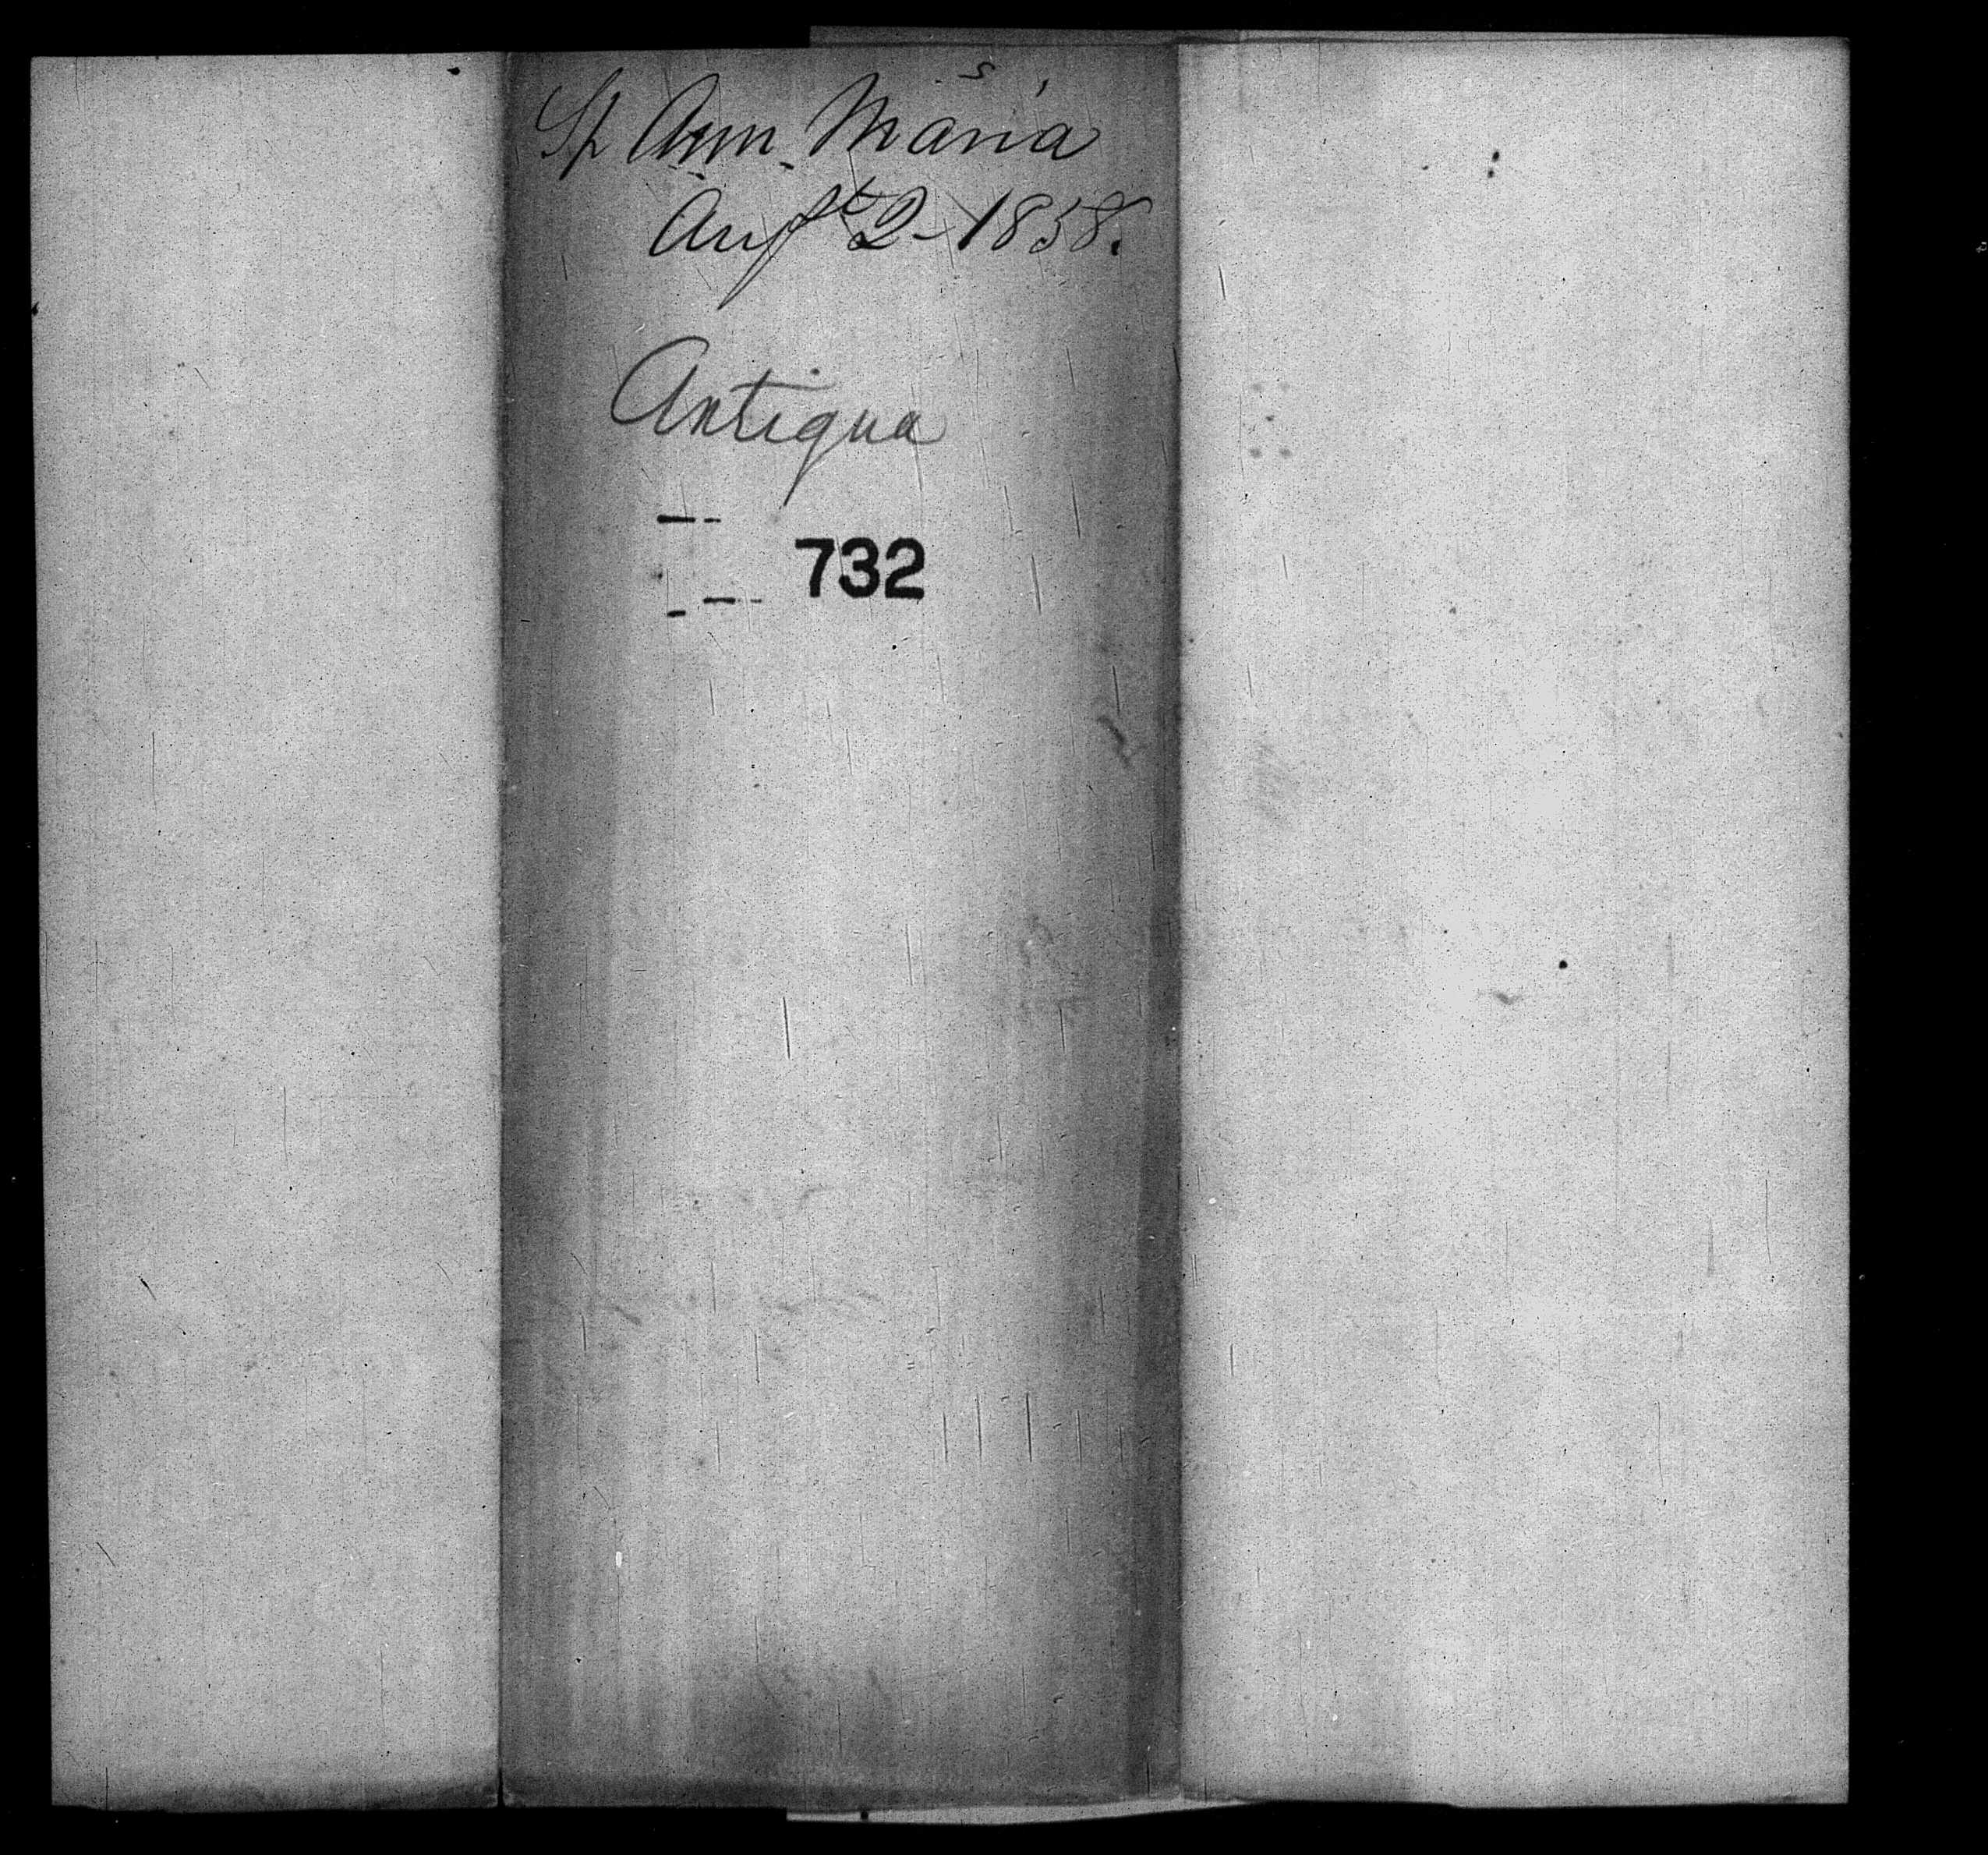 Sp Ann Maria
Augt 2 - 1858.
Antigua
732